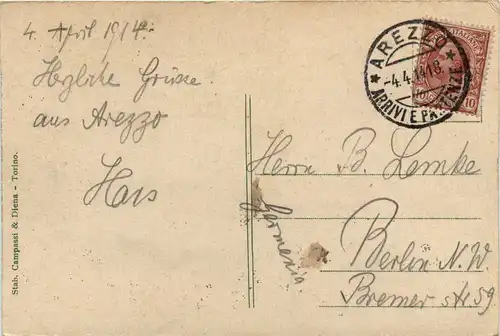 4. April 1914.
Herzliche Grüsse
aus Arezzo
Hans
Stab. Campassi & Diena - Torino.
AREZZO
-4.4.14 18.
ARRIVI E PARTENZE
10
Herrn B. Lemke
Germania.
Berlin N.W.
Bremer str 59